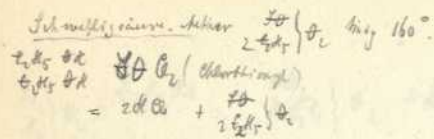 Schwefligsäure. Aether SO / 2 C₂H₅ } O₂ 160°.
C₂H₅ OH
C₂H₅ OH SO Cl₂ (Chlorthionyl)
= 2HCl + SO / 2 C₂H₅ } O₂